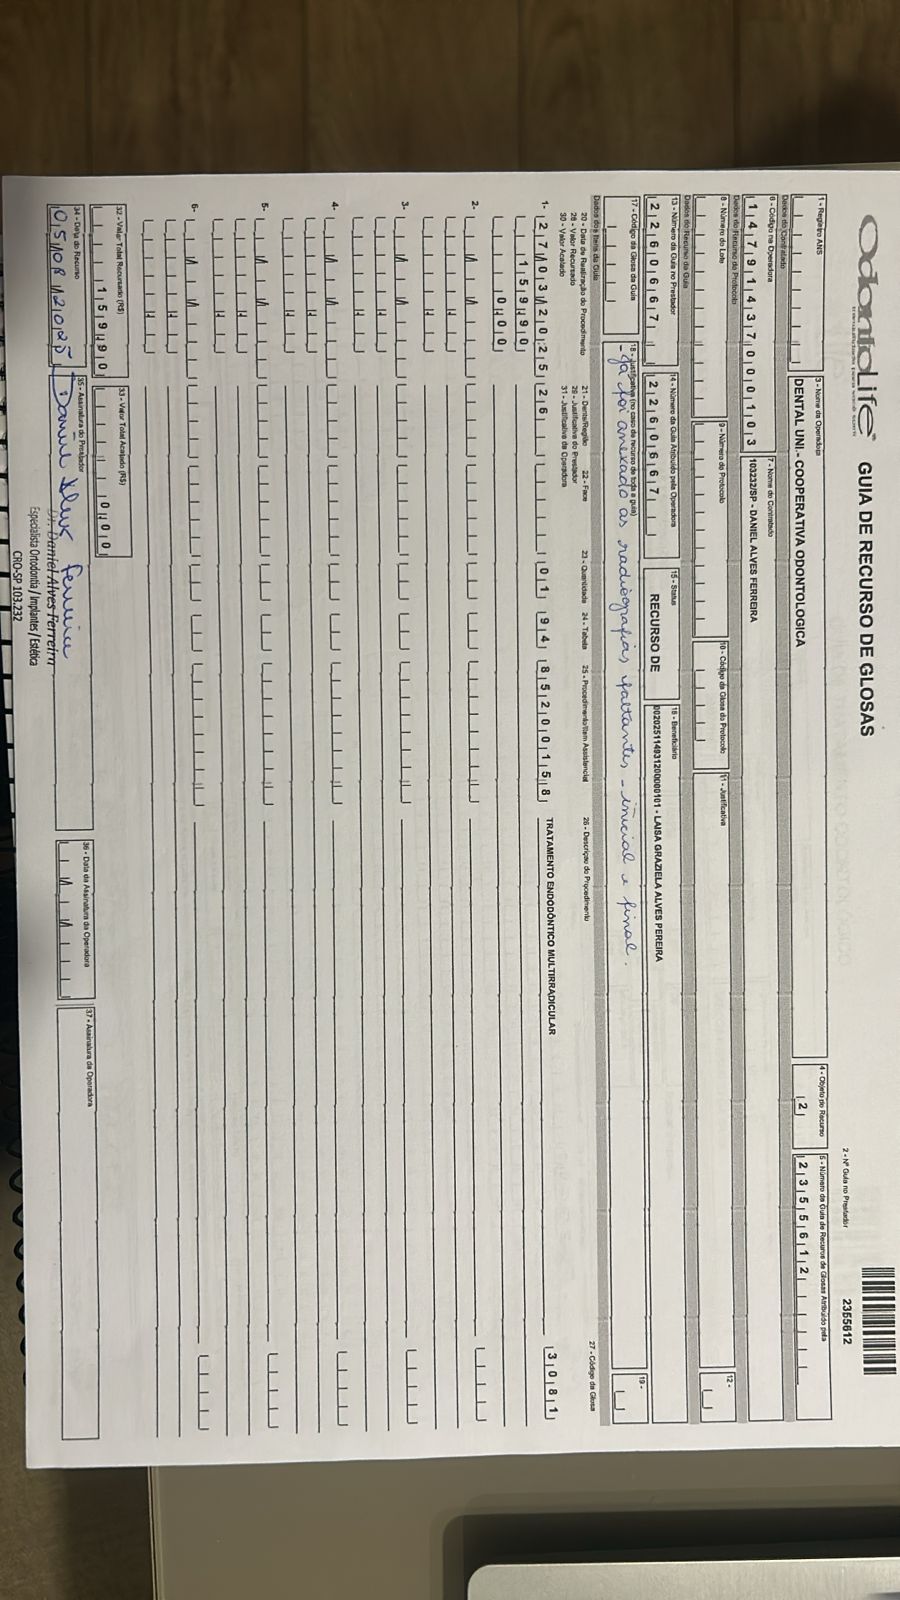 OdontoLife®
GUIA DE RECURSO DE GLOSAS
2 - Nº Guia no Prestador
2355612
1 - Registro ANS
3 - Nome da Operadora
DENTAL UNI - COOPERATIVA ODONTOLOGICA
4 - Objeto do Recurso
2
5 - Número da Guia de Recurso de Glosas Atribuído pela
2355612
Dados do Contratado
6 - Código na Operadora
14791437000103
7 - Nome do Contratado
103232/SP - DANIEL ALVES FERREIRA
Dados do Recurso do Protocolo
8 - Número do Lote
9 - Número do Protocolo
10 - Código da Glosa do Protocolo
11 - Justificativa
12 -
Dados do Recurso da Guia
13 - Número da Guia no Prestador
22606667
14 - Número da Guia Atribuído pela Operadora
22606667
15 - Status
RECURSO DE
16 - Beneficiário
00202511493120000101 - LAISA GRAZIELA ALVES PEREIRA
17 - Código da Glosa da Guia
18 - Justificativa (no caso de recurso de toda a guia)
- Já foi anexado as radiografias faltantes - inicial e final.
19 -
Dados dos Itens da Guia
20 - Data de Realização do Procedimento
21 - Dente/Região
22 - Face
23 - Quantidade
24 - Tabela
25 - Procedimento/Item Assistencial
26 - Descrição do Procedimento
27 - Código da Glosa
28 - Valor Recursado
29 - Justificativa do Prestador
30 - Valor Acatado
31 - Justificativa da Operadora
1- 27/03/2025 26 01 94 85200158 TRATAMENTO ENDODÔNTICO MULTIRRADICULAR 3081
159,90
0,00
2-
3-
4-
5-
6-
32 - Valor Total Recursado (R$)
159,90
33 - Valor Total Acatado (R$)
0,00
34 - Data do Recurso
05/08/2025
35 - Assinatura do Prestador
Daniel Alves Ferreira
Dr. Daniel Alves Ferreira
Especialista Ortodontia / Implantes / Estética
CRO-SP 103.232
36 - Data da Assinatura da Operadora
37 - Assinatura da Operadora